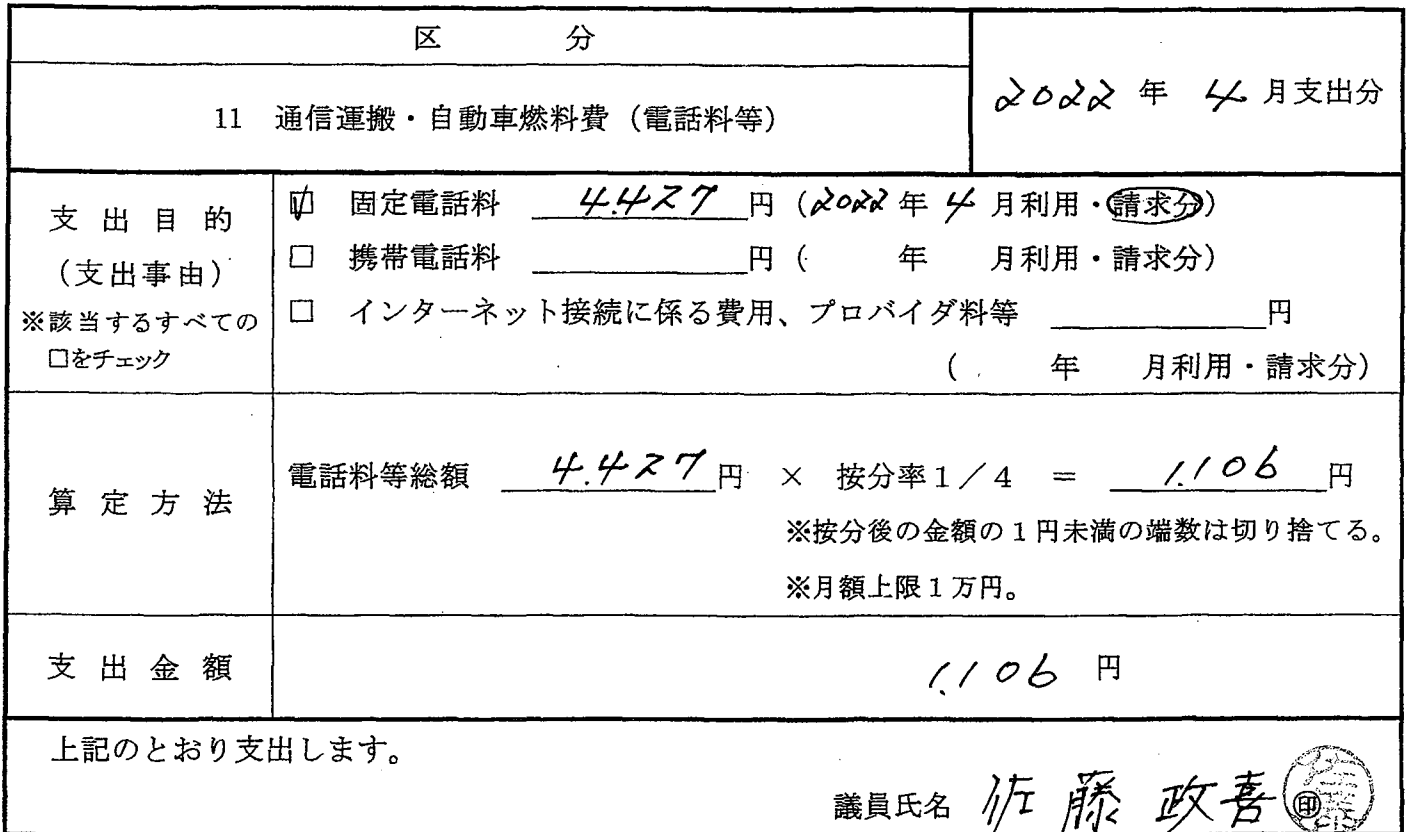 区 分
11 通信運搬・自動車燃料費（電話料等）
2022 年 4 月支出分
支 出 目 的
（支出事由）
※該当するすべての
□をチェック
☑ 固定電話料 4.427 円（2022 年 4 月利用・請求分）
□ 携帯電話料 円（ 年 月利用・請求分）
□ インターネット接続に係る費用、プロバイダ料等 円
（ 年 月利用・請求分）
算 定 方 法
電話料等総額 4.427 円 × 按分率１／４ ＝ 1.106 円
※按分後の金額の１円未満の端数は切り捨てる。
※月額上限１万円。
支 出 金 額
1.106 円
上記のとおり支出します。
議員氏名 佐藤 政喜 ㊞
佐藤